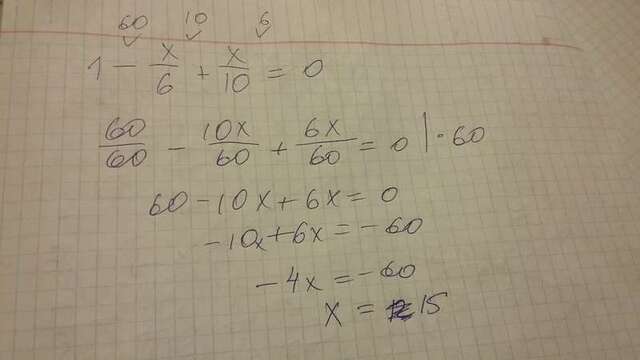 60 10 6
1 - x/6 + x/10 = 0
60/60 - 10x/60 + 6x/60 = 0 | · 60
60 - 10x + 6x = 0
-10x + 6x = -60
-4x = -60
x = 15